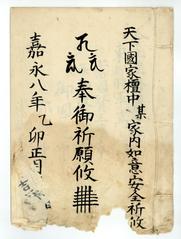 天下國家檀中某家内如意安全祈攸
奉御祈願攸
嘉永八年乙卯正月